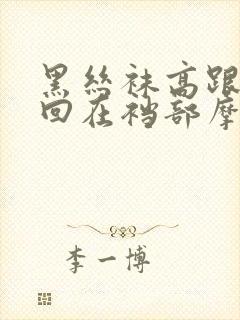 黑丝袜高跟
回在裆部摩
李一博